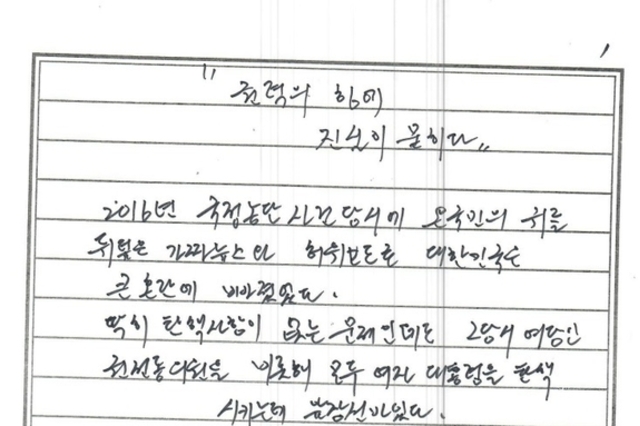 "권력의 힘에
진실이 묻히다"
2016년 국정농단 사건 당시에 온국민의 귀를
뒤덮은 가짜뉴스와 허위보도로 대한민국은
큰 혼란에 빠졌었다.
딱히 탄핵사항이 없는 문제인데도 그당시 여당인
의원을 비롯해 모두 여자 대통령을 탄핵
시키는데 앞장선바있다.